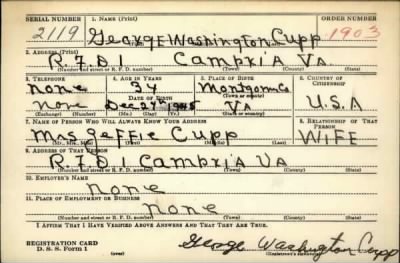 SERIAL NUMBER 1. NAME (Print) ORDER NUMBER
2119 George Washington Cupp 1903
2. ADDRESS (Print)
R.F.D 1 Cambria Va.
(Number and street or R. F. D. number) (Town) (County) (State)
3. TELEPHONE 4. AGE IN YEARS 5. PLACE OF BIRTH 6. COUNTRY OF CITIZENSHIP
none 34 Montgom Co
DATE OF BIRTH (Town or county)
none Dec-27 VA U.S.A
(Exchange) (Number) (Mo.) (Day) (Yr.) (State or country)
7. NAME OF PERSON WHO WILL ALWAYS KNOW YOUR ADDRESS 8. RELATIONSHIP OF THAT PERSON
Mrs Geffie Cupp WIFE
(Mr., Mrs., Miss) (First) (Middle) (Last)
9. ADDRESS OF THAT PERSON
R.F.D 1 Cambria VA
(Number and street or R. F. D. number) (Town) (County) (State)
10. EMPLOYER'S NAME
none
11. PLACE OF EMPLOYMENT OR BUSINESS
none
(Number and street or R. F. D. number) (Town) (County) (State)
I AFFIRM THAT I HAVE VERIFIED ABOVE ANSWERS AND THAT THEY ARE TRUE.
REGISTRATION CARD
D. S. S. Form 1 (over) George Washington Cupp
(Registrant's signature)